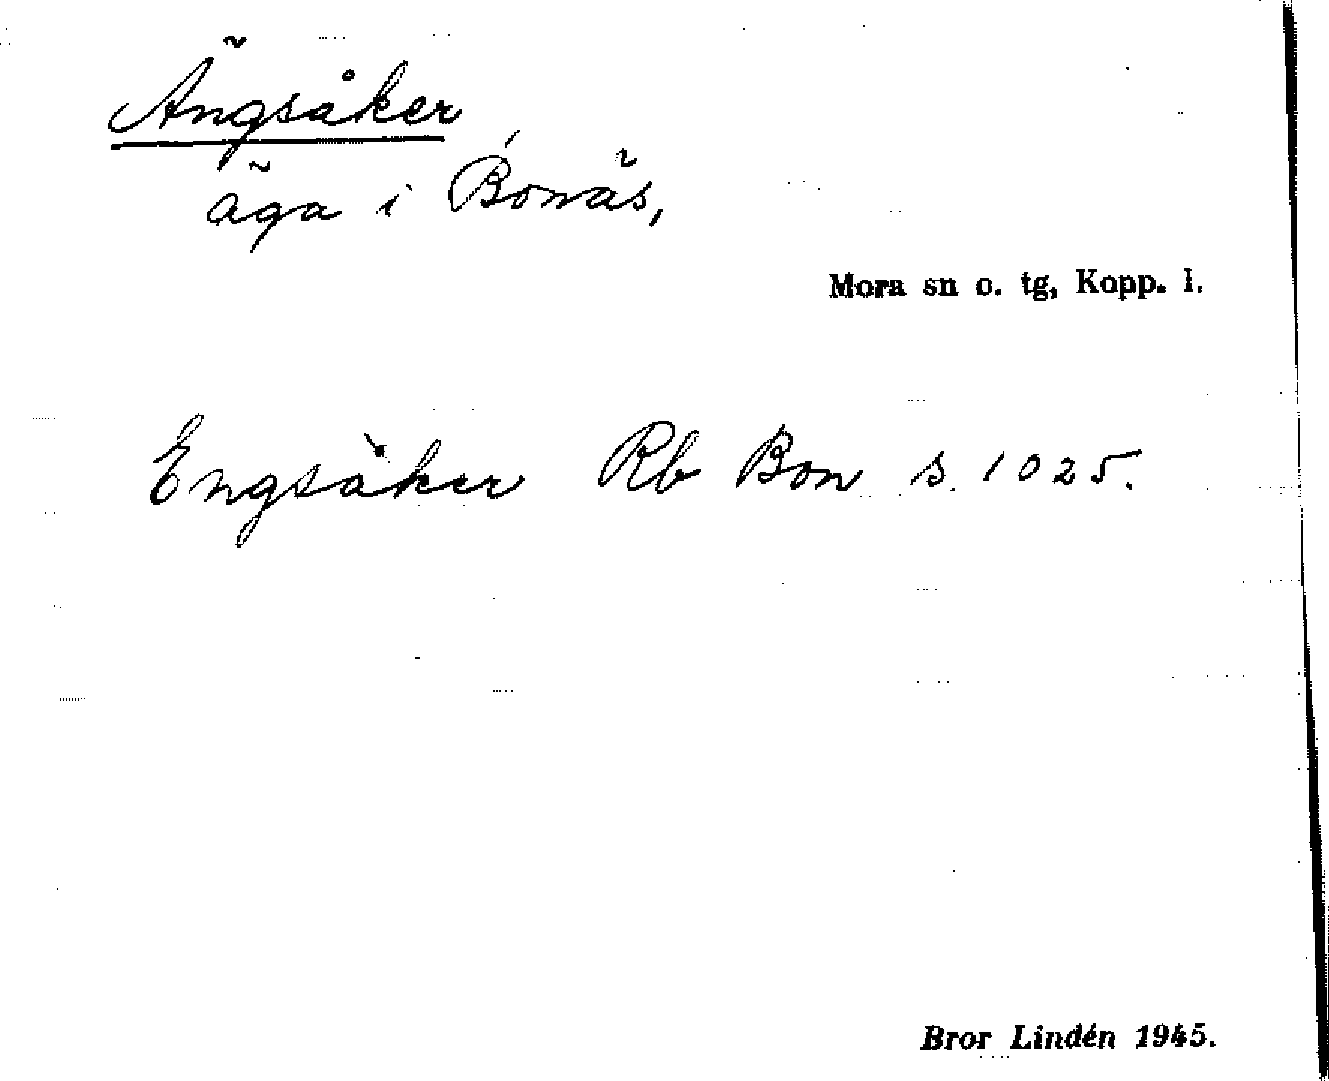 Ängsåker
äga i Bonäs,
Mora sn o. tg, Kopp. l.
Engsåker Rb Bon s. 1025.
Bror Lindén 1945.